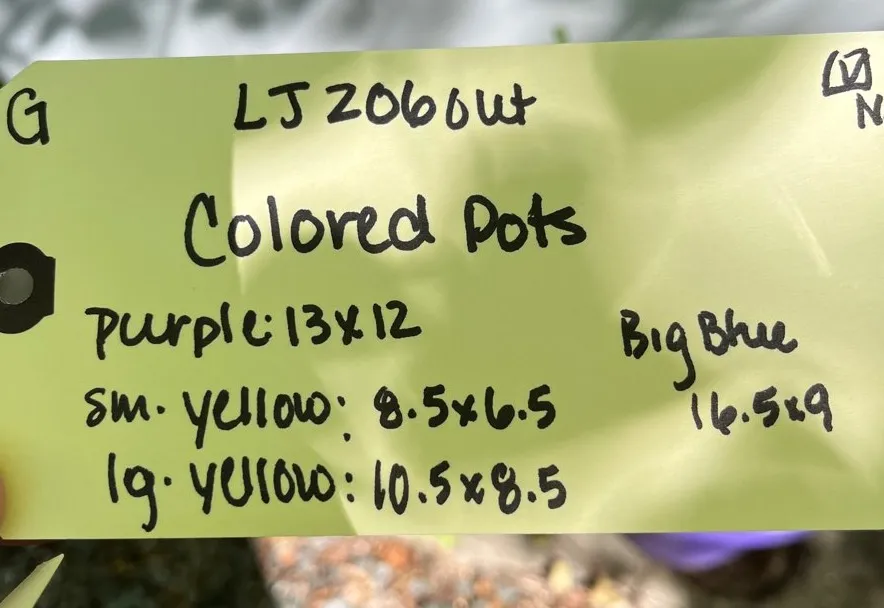 G
LJ206out
N
Colored Dots
purple: 13x12
Big Blue
16.5x9
sm. yellow: 8.5x6.5
lg. yellow: 10.5x8.5